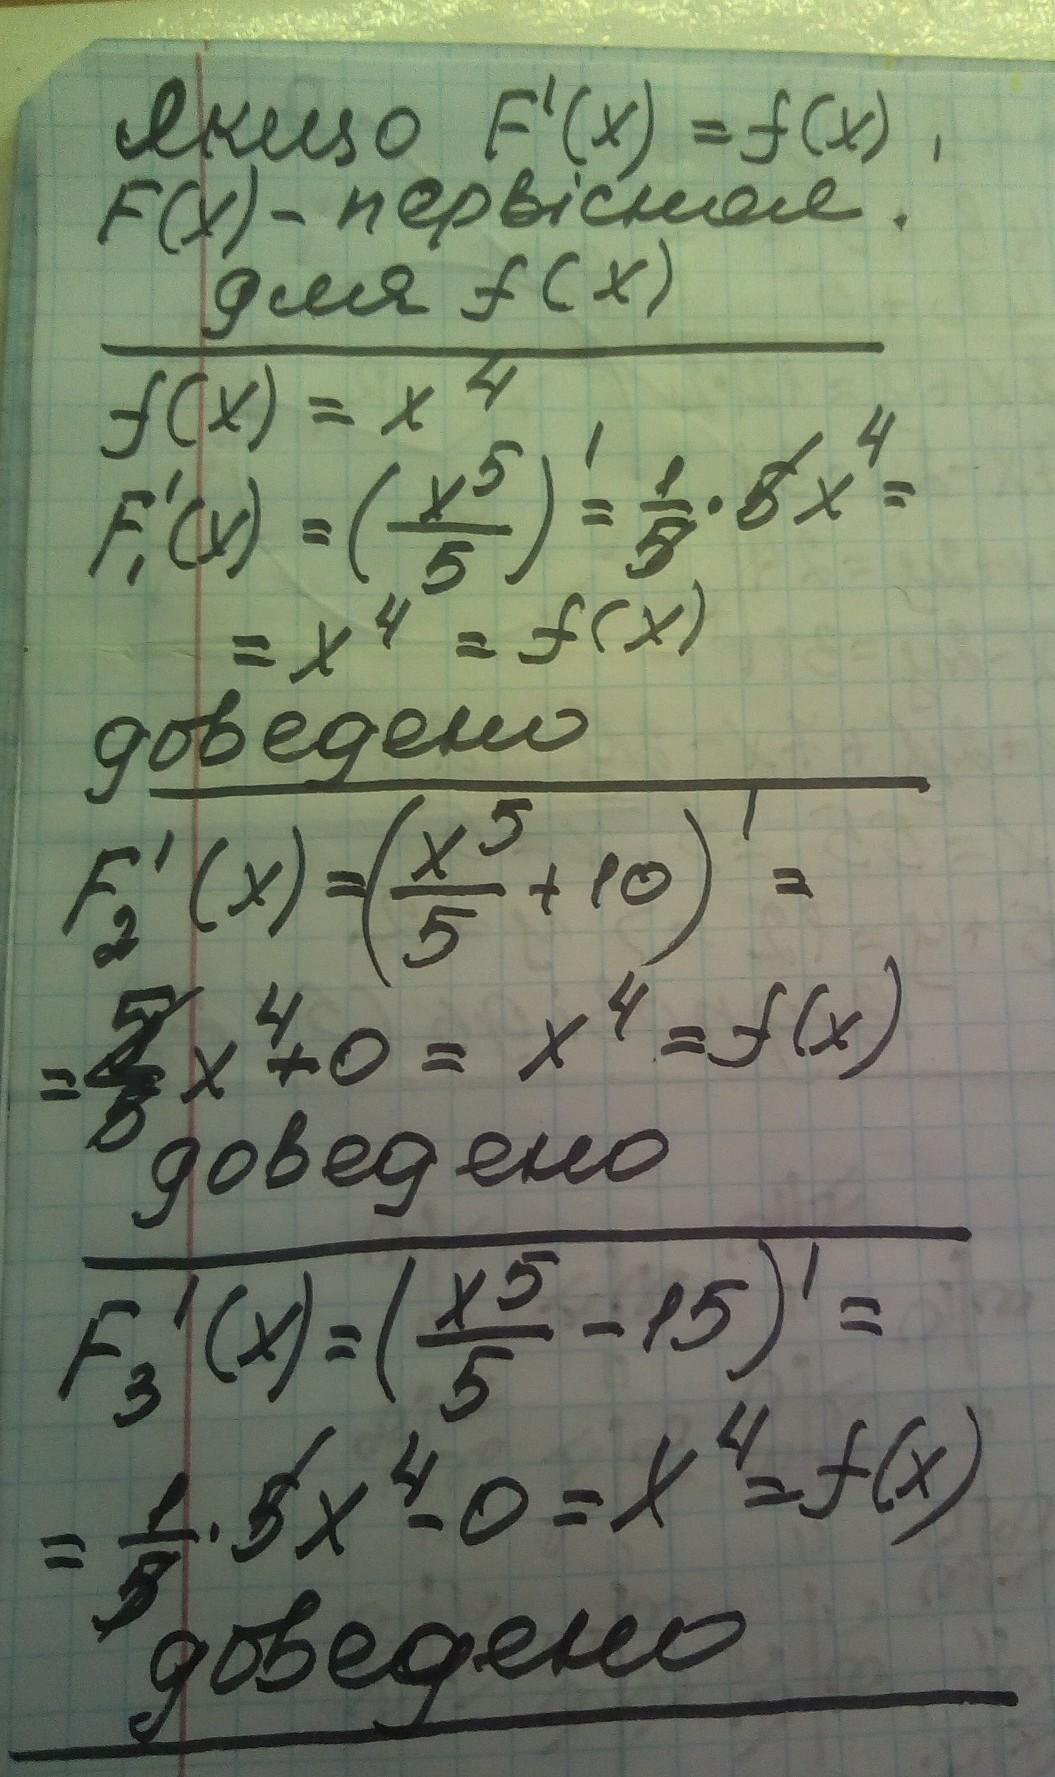 Якщо F'(x) = f(x),
F(x) - первісная.
для f(x)
f(x) = x⁴
F₁'(x) = (x⁵/5)' = 1/5 · 5x⁴ =
= x⁴ = f(x)
доведено
F₂'(x) = (x⁵/5 + 10)' =
= 5/5 x⁴ + 0 = x⁴ = f(x)
доведено
F₃'(x) = (x⁵/5 - 15)' =
= 1/5 · 5x⁴ - 0 = x⁴ = f(x)
доведено